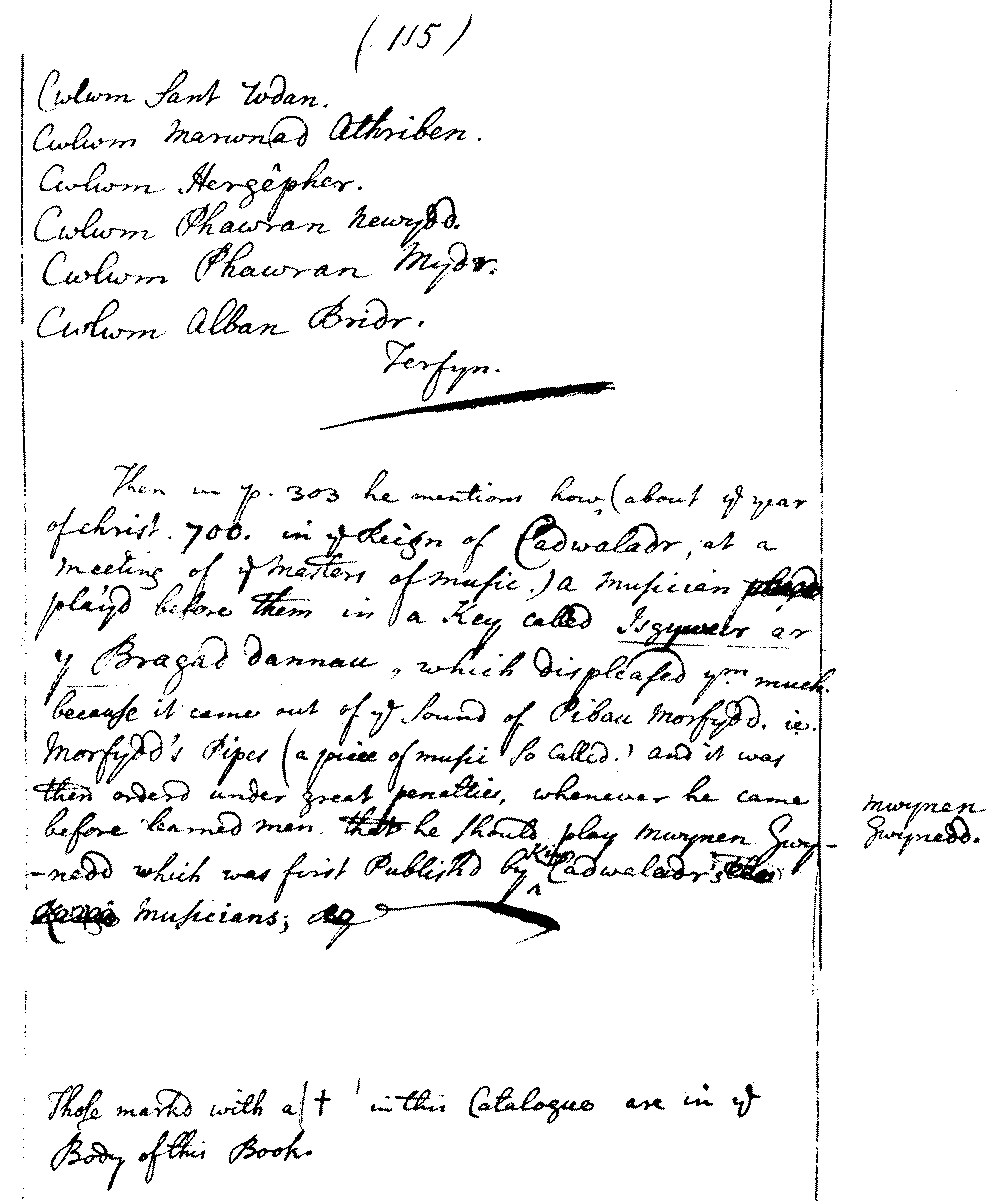 (115)
Cwlwm Sant Iodan.
Cwlwm Marwnad Athriben.
Cwlwm Hergêpher.
Cwlwm Phawran newydd.
Cwlwm Phawran Mydr.
Cwlwm Alban Bridr.
Terfyn.
Then in p. 303 he mentions how (about ye year
of christ. 700. in ye Reign of Cadwaladr, at a
meeting of ye Masters of music.) a Musician
play'd before them in a Key called Isgywair ar
y Bragad dannau, which displeased ym much.
because it came out of ye Sound of Pibau Morfydd. ie.
Morfydd's Pipes (a piece of music so called.) and it was
then orderd under great penalties, whenever he came
before learned men. that he should play Mwynen Gwy-
-nedd which was first Publishd by King Cadwaladr's
Musicians;
Mwynen
Gwynedd.
Those markd with a † in this Catalogue are in ye
Body of this Book.